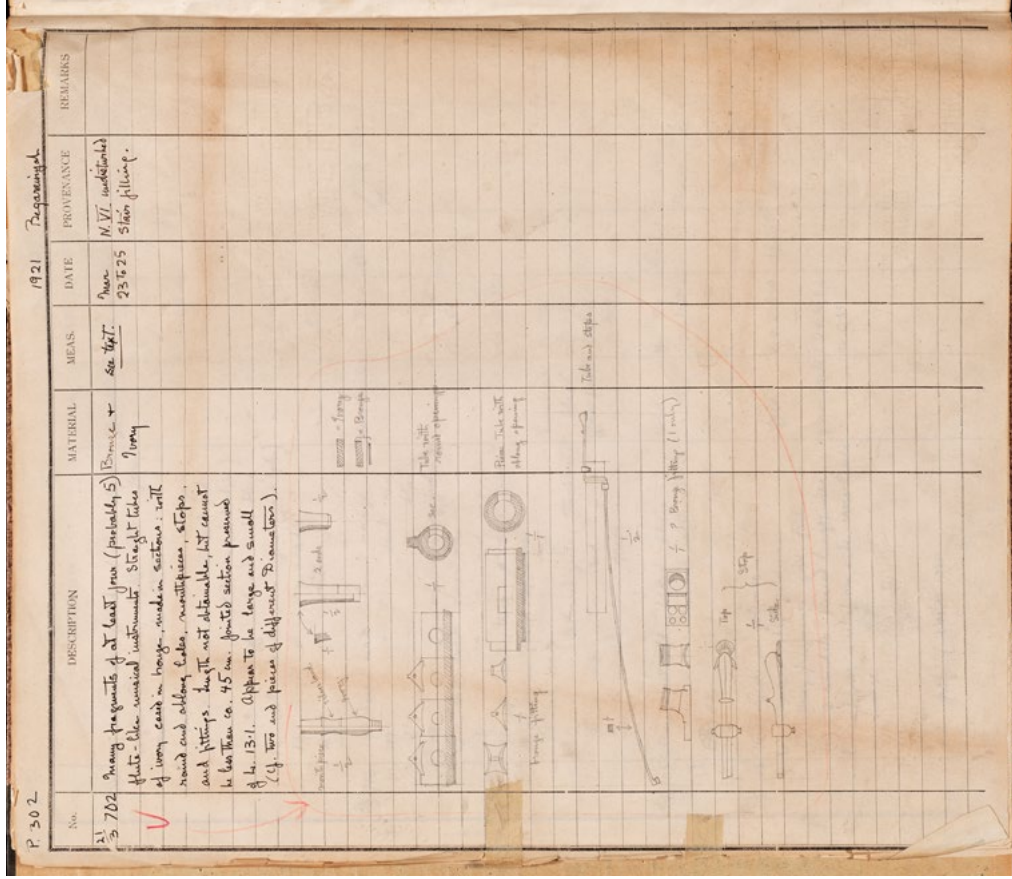 P. 302
1921 Begarawiyah
No.
DESCRIPTION
MATERIAL
MEAS.
DATE
PROVENANCE
REMARKS
21
3 702
Many fragments of at least four (probably 5)
flute-like musical instruments. Straight tubes
of ivory cased in bronze, made in sections: with
round and oblong holes, mouthpieces, stops,
and fittings. Length not obtainable, but cannot
be less than ca. 45 cm. Jointed section preserved
of L. 13.1. Appear to be large and small
(cf. two end pieces of different Diameters).
Bronze +
Ivory
see text.
Mar
23 to 25
N. VI undisturbed
stair filling.
mouthpiece
1/2
ivory
2 ends
1/2
= Ivory
= Bronze
Tube with
round openings
sec.
1/1
Tube with
oblong opening
1/1
bronze fitting
Tube and stops
1/2
1/1 ? Bronze fitting (1 only)
Top
1/1
Side
Stop